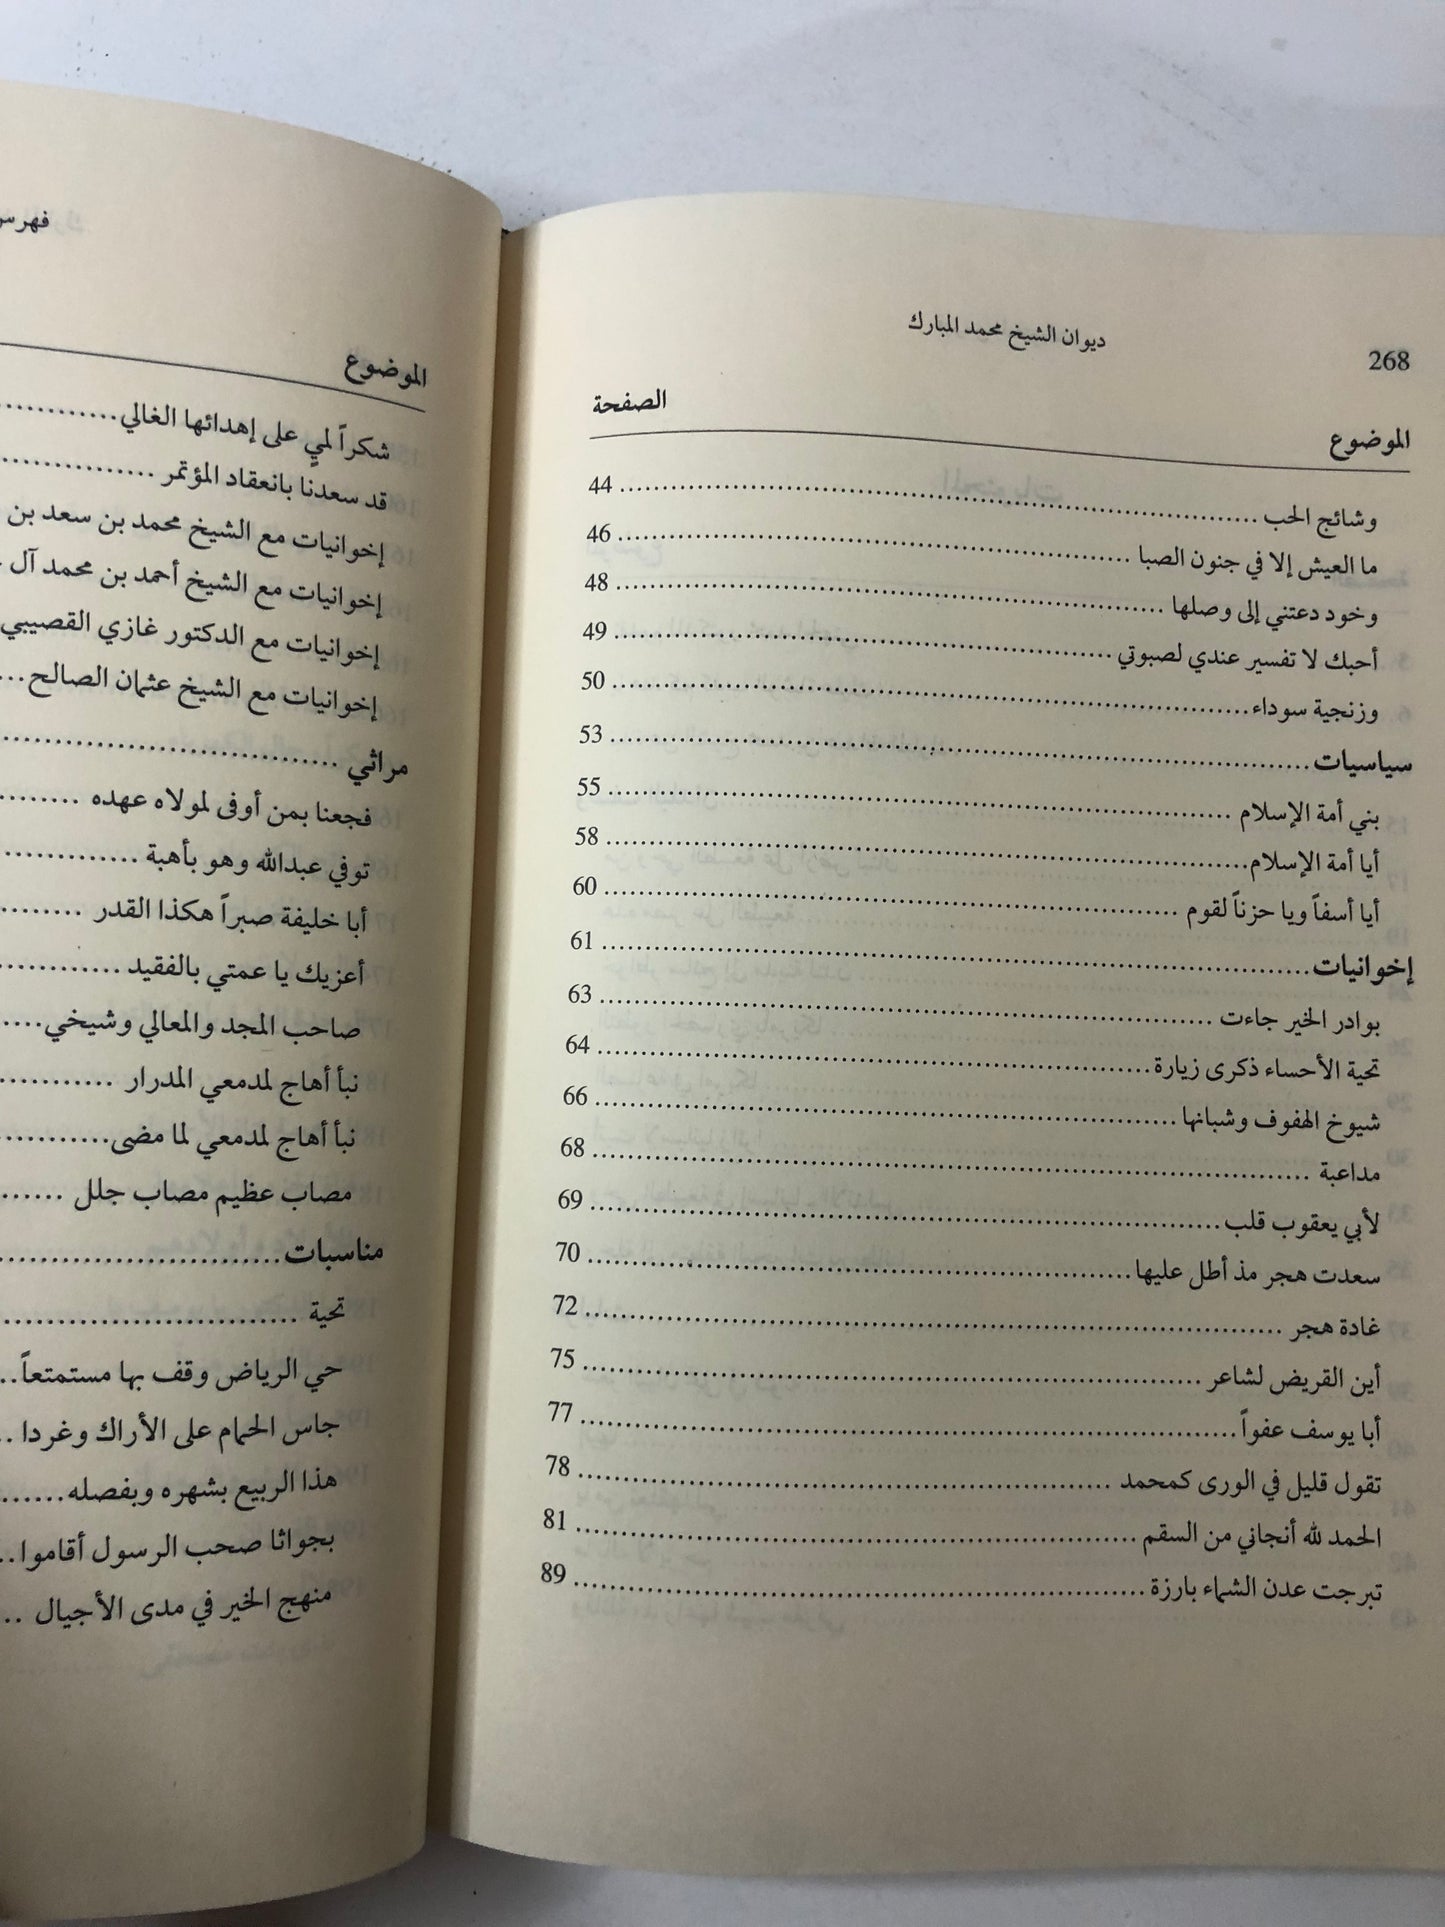 268
ديوان الشيخ محمد المبارك
الموضوع الصفحة
وشائج الحب ........ 44
ما العيش إلا في جنون الصبا ........ 46
وخود دعتني إلى وصلها ........ 48
أحبك لا تفسير عندي لصبوتي ........ 49
وزنجية سوداء ........ 50
سياسيات ........ 53
بني أمة الإسلام ........ 55
أيا أمة الإسلام ........ 58
أيا أسفاً ويا حزناً لقوم ........ 60
إخوانيات ........ 61
بوادر الخير جاءت ........ 63
تحية الأحساء ذكرى زيارة ........ 64
شيوخ الهفوف وشبانها ........ 66
مداعبة ........ 68
لأبي يعقوب قلب ........ 69
سعدت هجر مذ أطل عليها ........ 70
غادة هجر ........ 72
أين القريض لشاعر ........ 75
أبا يوسف عفواً ........ 77
تقول قليل في الورى كمحمد ........ 78
الحمد لله أنجاني من السقم ........ 81
تبرجت عدن الشماء بارزة ........ 89
فهرس
الموضوع
شكراً لميٍ على إهدائها الغالي ........
قد سعدنا بانعقاد المؤتمر ........
إخوانيات مع الشيخ محمد بن سعد بن
إخوانيات مع الشيخ أحمد بن محمد آل
إخوانيات مع الدكتور غازي القصيبي
إخوانيات مع الشيخ عثمان الصالح ...
مراثي ........
فجعنا بمن أوفى لمولاه عهده ........
توفي عبدالله وهو بأهبة ........
أبا خليفة صبراً هكذا القدر ........
أعزيك يا عمتي بالفقيد ........
صاحب المجد والمعالي وشيخي ....
نبأ أهاج لمدمعي المدرار ........
نبأ أهاج لمدمعي لما مضى ........
مصاب عظيم مصاب جلل ......
مناسبات ........
تحية ........
حي الرياض وقف بها مستمتعاً ..
جاس الحمام على الأراك وغردا ..
هذا الربيع بشهره وبفصله ......
بجواثا صحب الرسول أقاموا ..
منهج الخير في مدى الأجيال ..